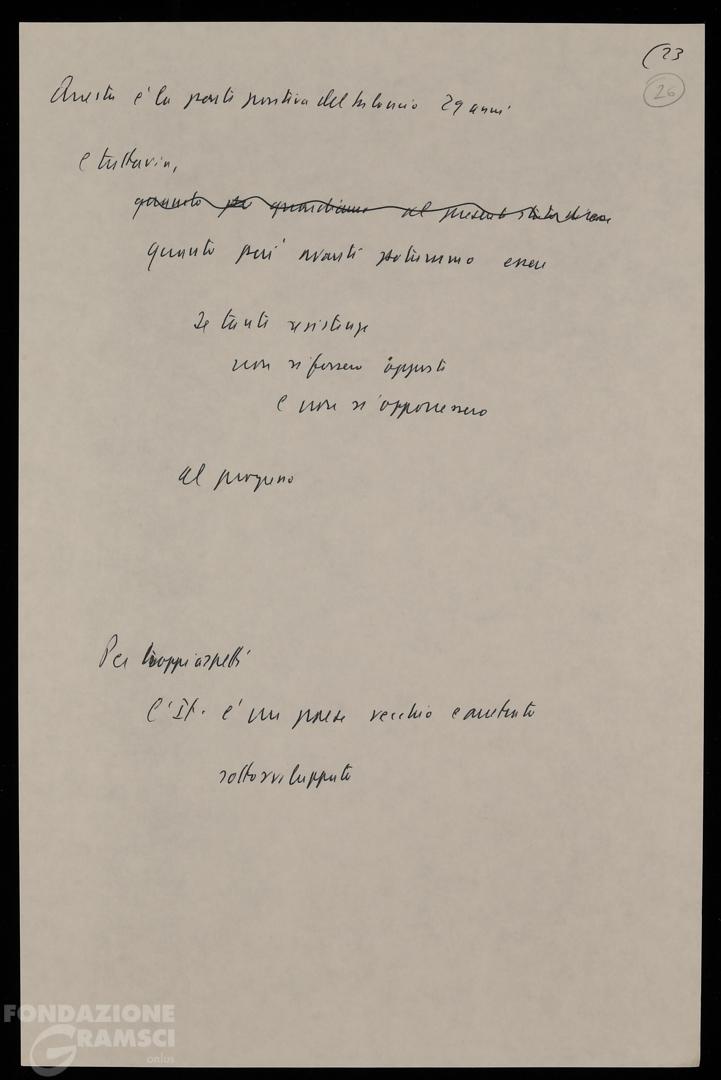 (23
26
Questa è la parte positiva del bilancio 29 anni
e tuttavia,
quanto guardiamo al presente
quanto più avanti potremmo essere
se tante resistenze
non si fossero opposte
e non si opponessero
al progresso
Per troppi aspetti
l'It. è un paese vecchio e arretrato
sottosviluppato
FONDAZIONE
GRAMSCI
onlus